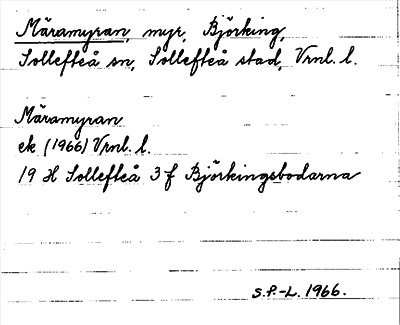 Märamyran, myr, Björking,
Sollefteå sn, Sollefteå stad, Vrnl. l.
Märamyran
ek (1966) Vrnl. l.
19 H Sollefteå 3 f Björkingsbodarna
S.P.-L. 1966.